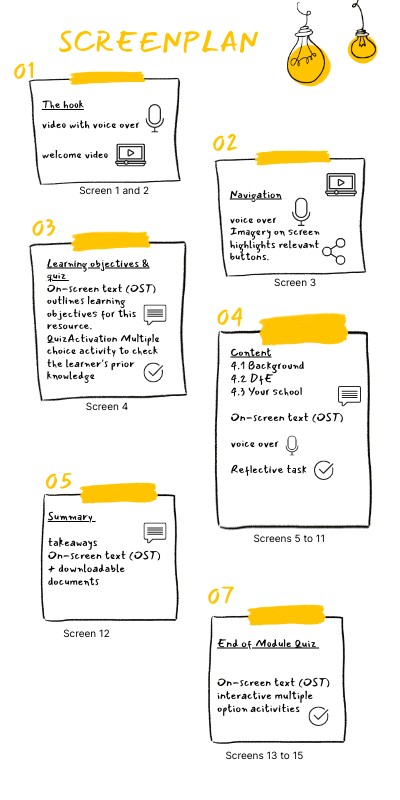 SCREENPLAN
01
The hook
video with voice over
welcome video
Screen 1 and 2
02
Navigation
voice over
Imagery on screen
highlights relevant
buttons.
Screen 3
03
Learning objectives &
quiz
On-screen text (OST)
outlines learning
objectives for this
resource.
QuizActivation Multiple
choice activity to check
the learner's prior
knowledge
Screen 4
04
Content
4.1 Background
4.2 DfE
4.3 Your school
On-screen text (OST)
voice over
Reflective task
Screens 5 to 11
05
Summary
takeaways
On-screen text (OST)
+ downloadable
documents
Screen 12
07
End of Module Quiz
On-screen text (OST)
interactive multiple
option acitivities
Screens 13 to 15